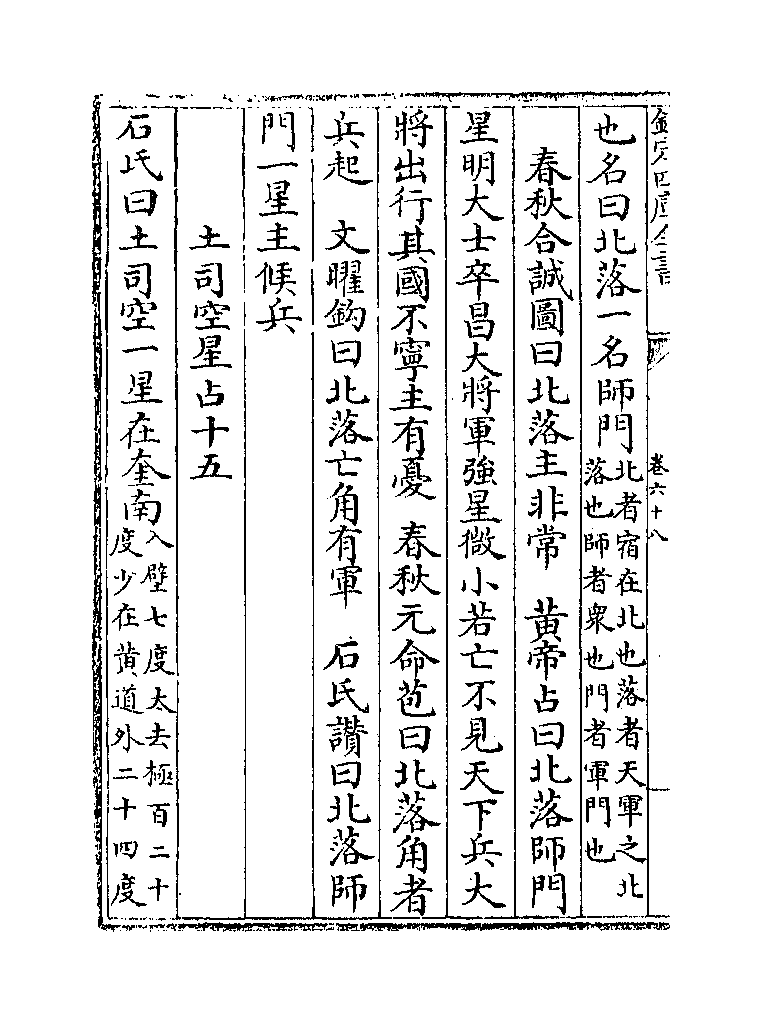 欽定四庫全書
卷六十八
也名曰北落一名師門北者宿在北也落者天軍之北落也師者衆也門者軍門也
春秋合誠圖曰北落主非常　黃帝占曰北落師門
星明大士卒昌大將軍強星微小若亡不見天下兵大
將出行其國不寧主有憂　春秋元命苞曰北落角者
兵起　文曜鈎曰北落亡角有軍　石氏讚曰北落師
門一星主候兵
土司空星占十五
石氏曰土司空一星在奎南入壁七度太去極百二十度少在黃道外二十四度